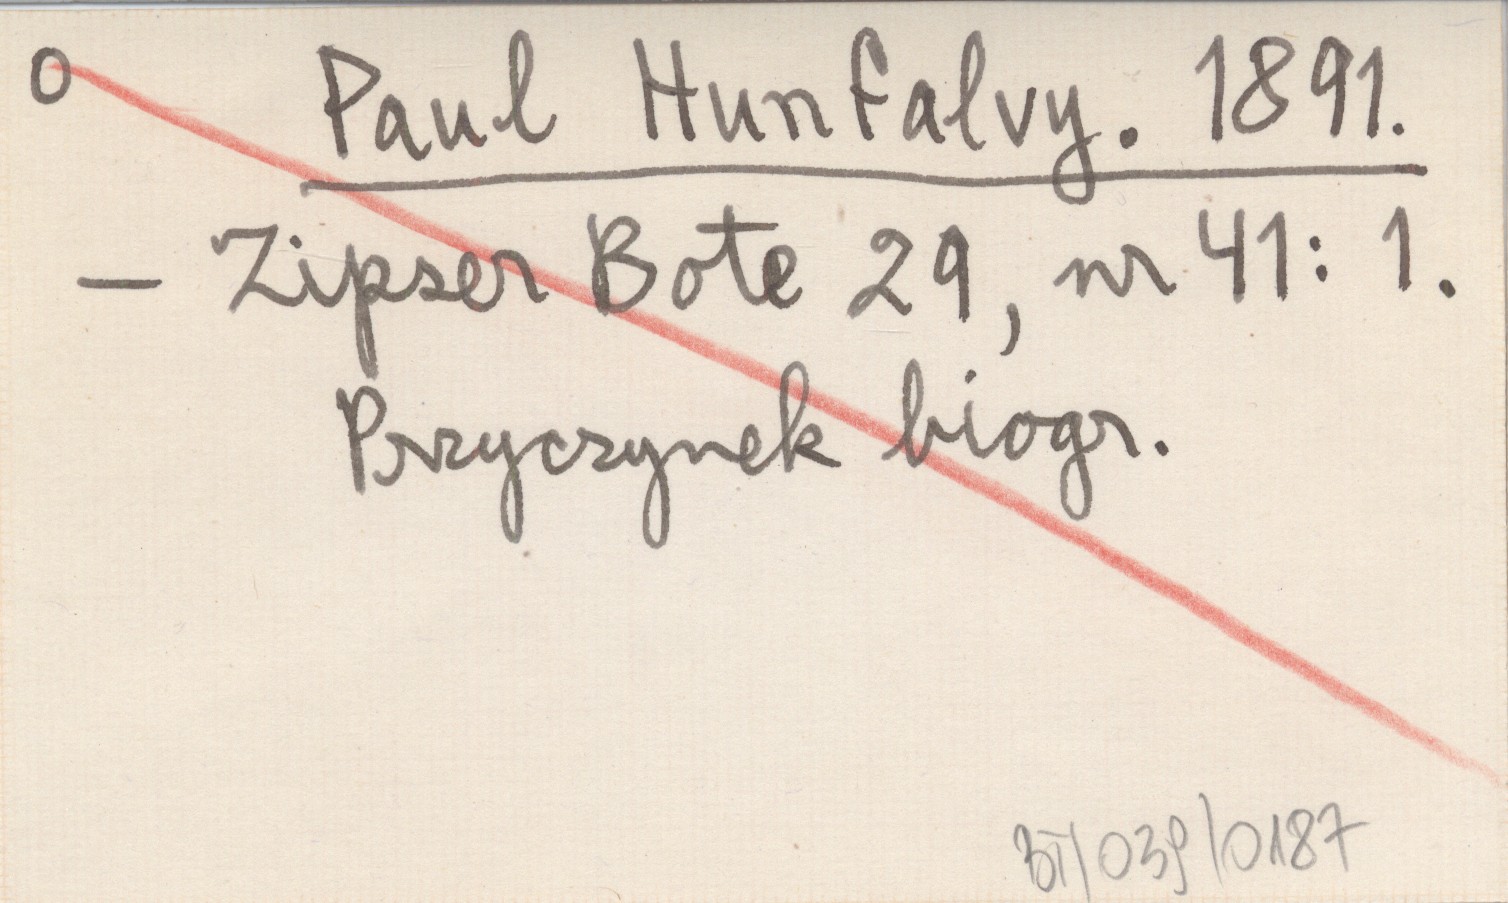 O Paul Hunfalvy. 1891.
— Zipser Bote 29, nr 41: 1.
Przyczynek biogr.
BT/039/0187